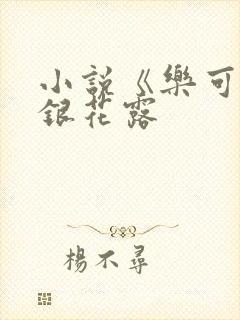 小説《樂可
銀花露
楊不尋